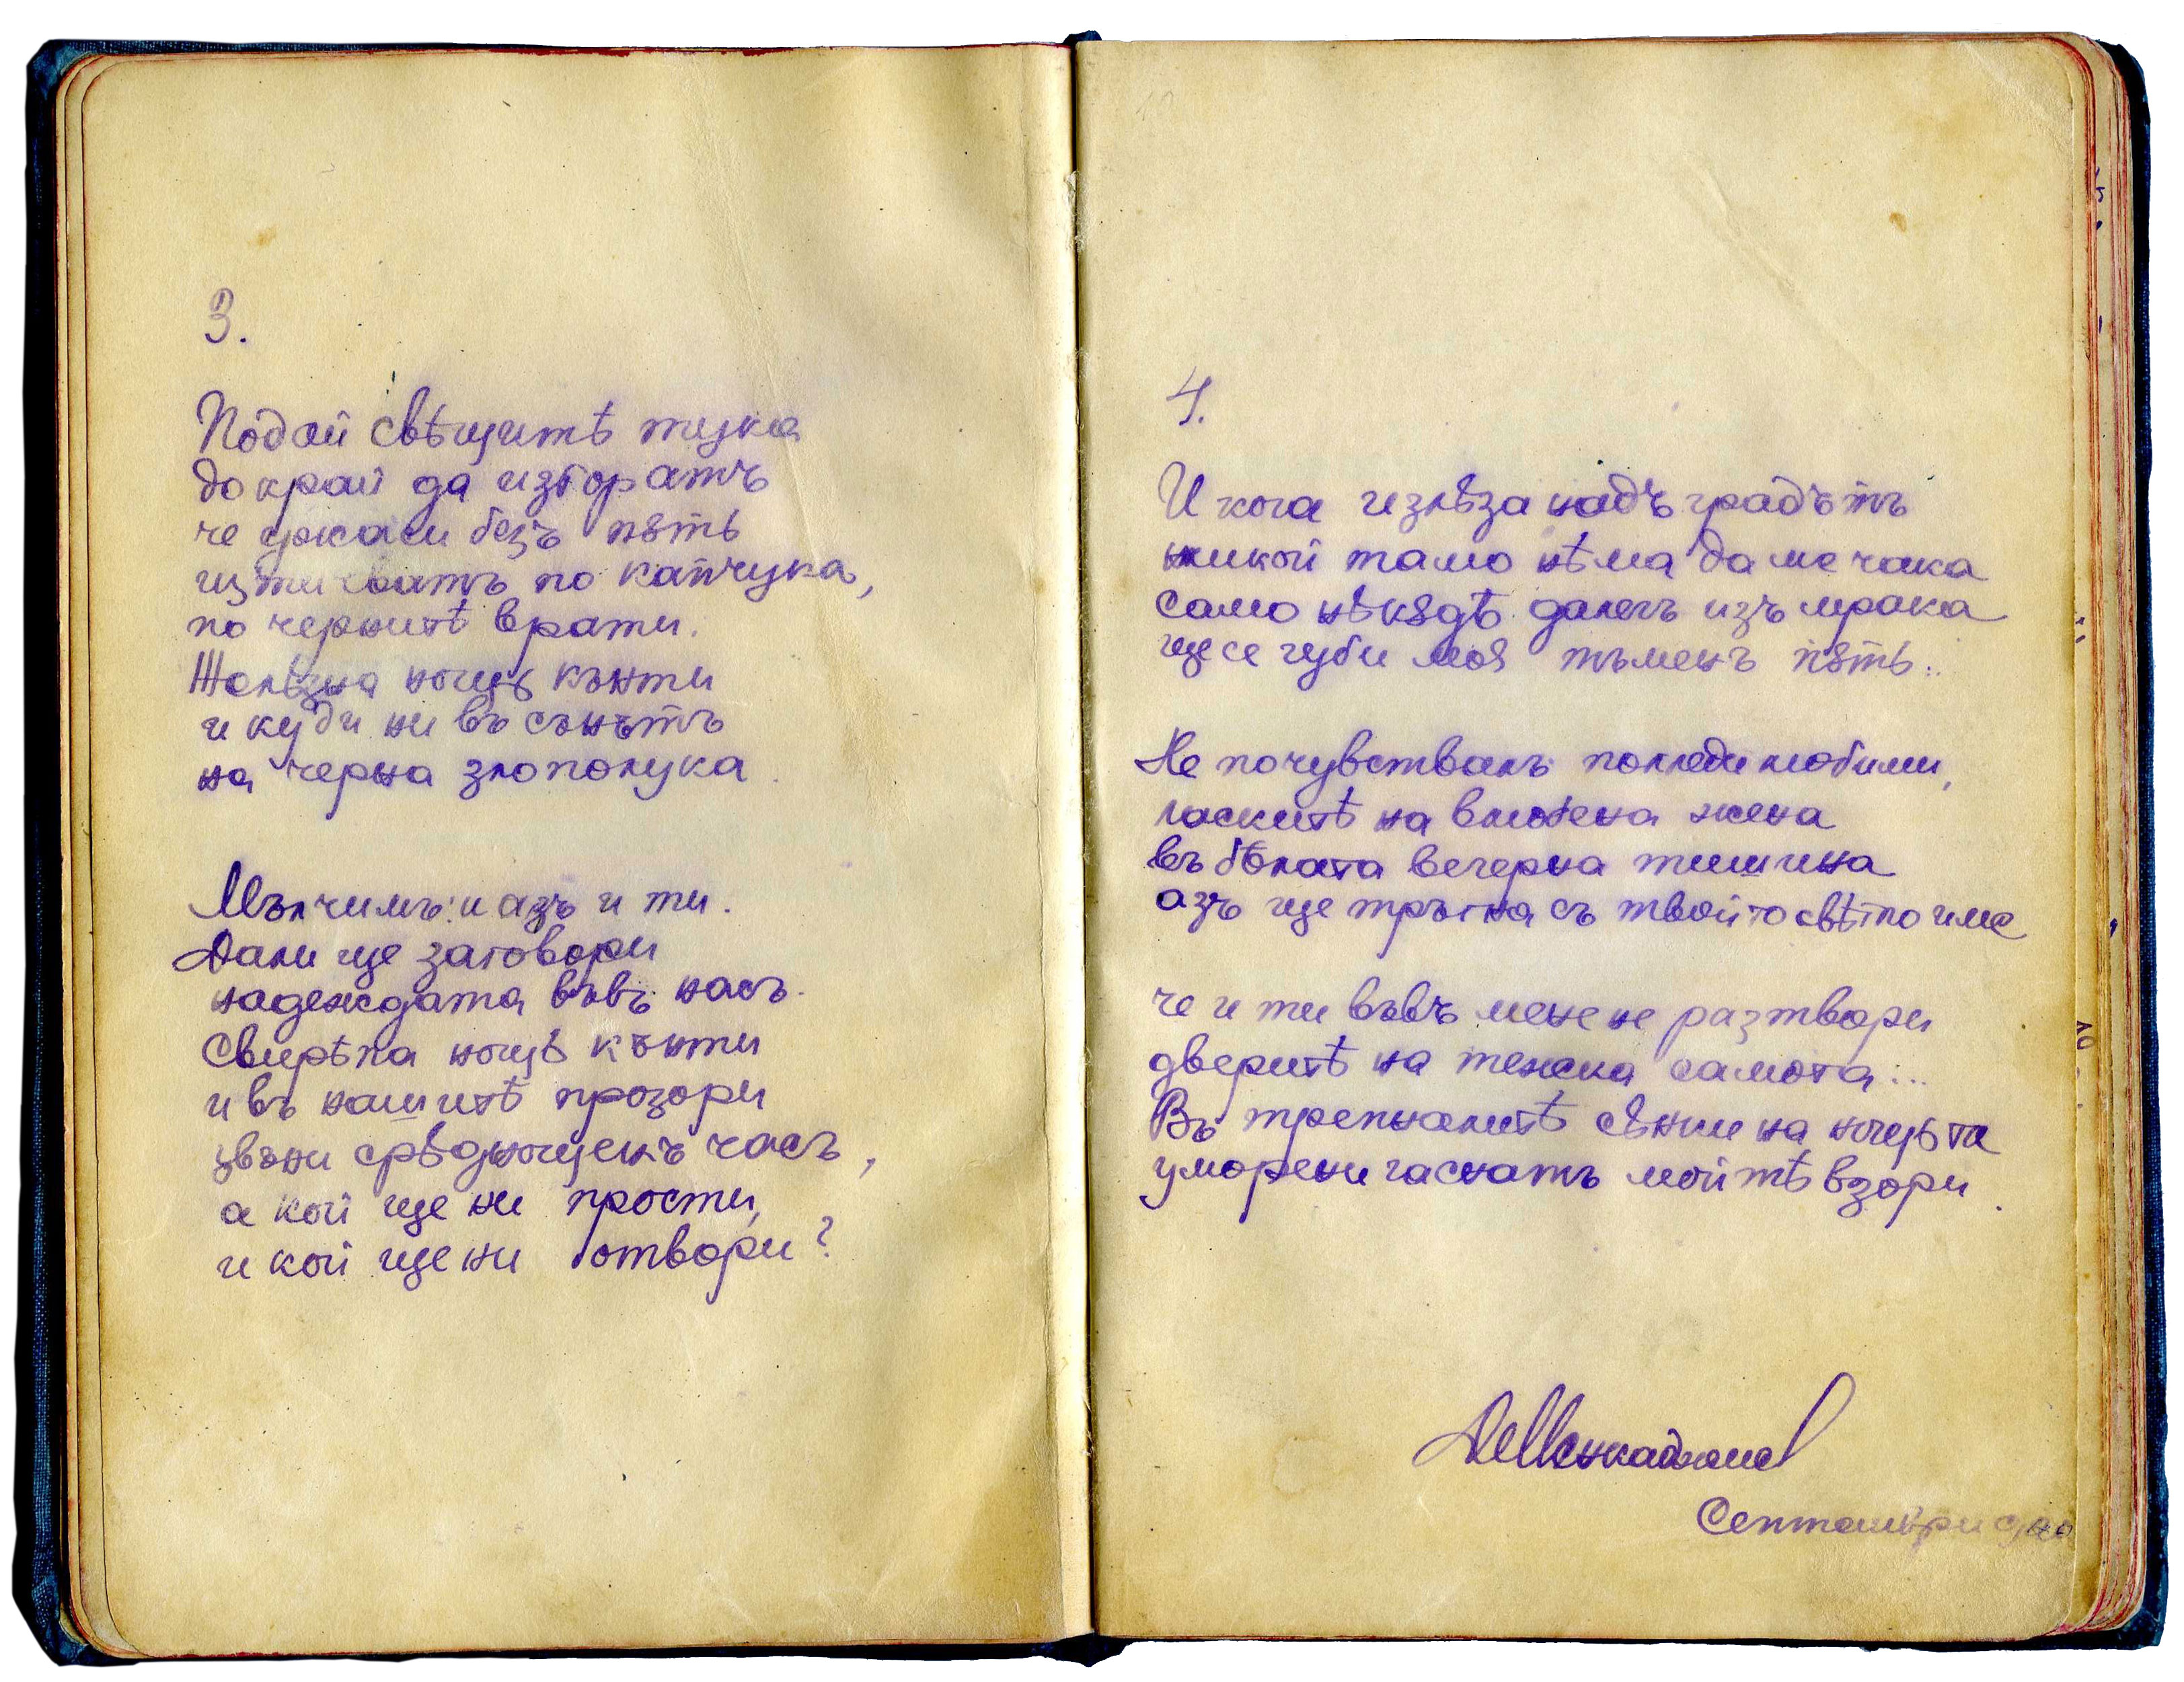 3.
Подай свѣщитѣ тука
докрай да изгорятъ
че ужаси безъ пѫть
изтичватъ по капчука,
по чернитѣ врати.
Желѣзна нощь кънти
и куди ни въ сънътъ
на черна злополука.
Мълчимъ: и азъ и ти.
Дали ще заговори
надеждата въвъ насъ.
Свирѣпа нощь кънти
и въ нашитѣ прозори
звъни срѣднощенъ часъ,
а кой ще ни прости,
и кой ще ни отвори?
4.
И кога излѣза надъ градътъ
никой тамо нѣма да ме чака
само нѣкѫдѣ далечъ изъ мрака
ще се губи моя тъменъ пѫть..
Не почувствалъ погледи любими,
ласкитѣ на влюбена жена
въ бѣлата вечерна тишина
азъ ще тръгна съ твойто свѣтло име
че и ти въвъ мене не разтвори
дверитѣ на тежка самота...
Въ трепналитѣ сѣнки на нощьта
уморени гаснатъ мойтѣ взори.
Септемврий